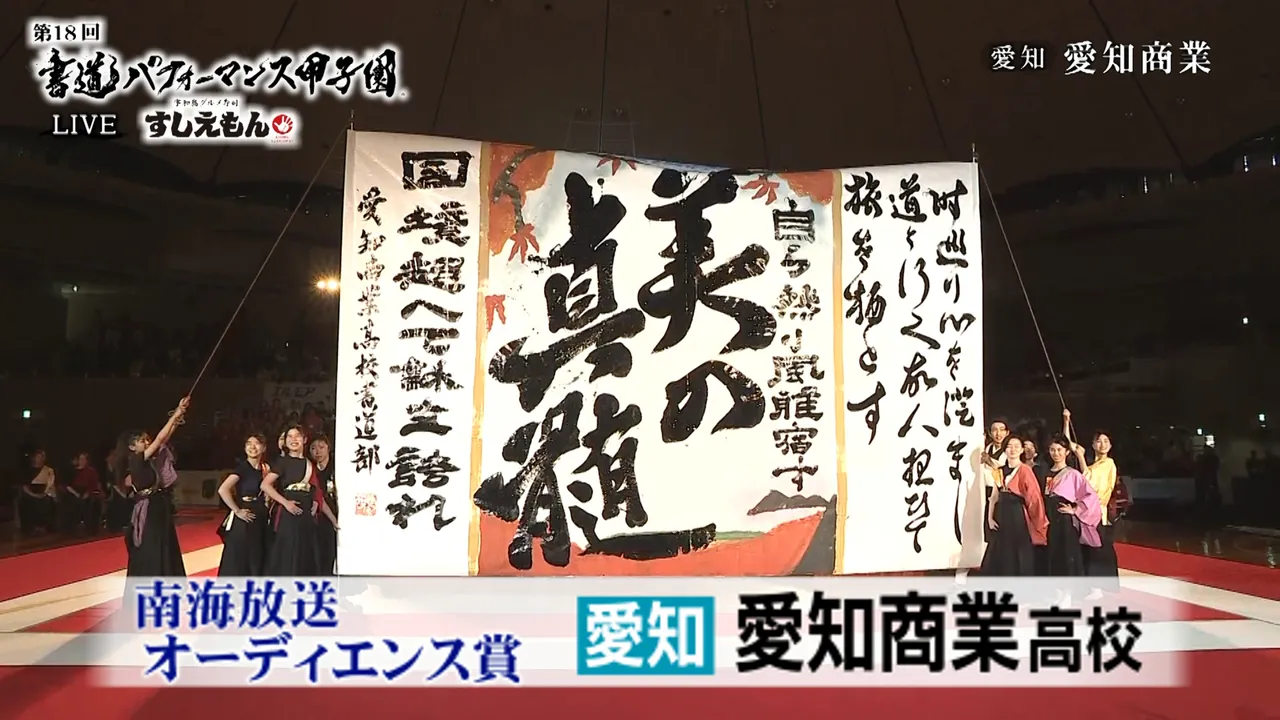 第18回
書道パフォーマンス甲子園
LIVE
宇和島グルメ寿司
すしえもん
愛知 愛知商業
時巡り心を澄まし
道を行く故人想ひて
旅を栖とす
自ら
風雅宿す
美の
真髄
国境超へて
誇れ
愛知商業高校書道部
南海放送
オーディエンス賞
愛知 愛知商業高校